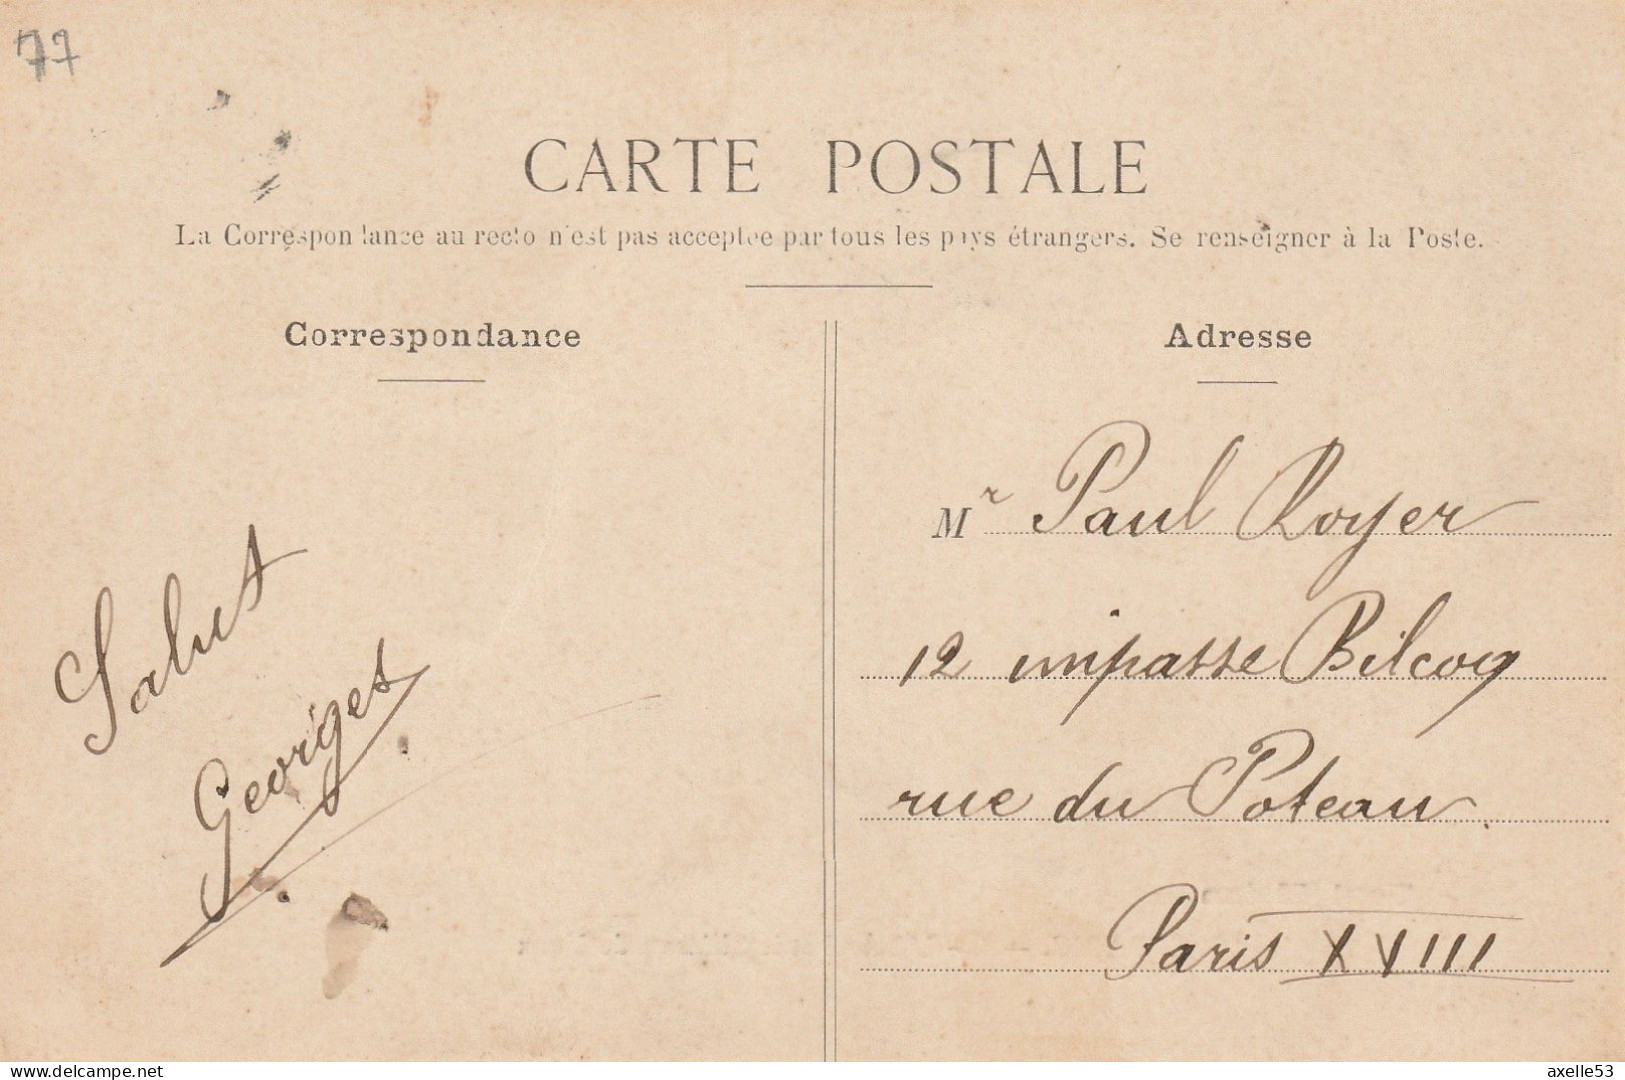 77
CARTE POSTALE
La Correspondance au recto n'est pas acceptée par tous les pays étrangers. Se renseigner à la Poste.
Correspondance
Salut
Georges
Adresse
Mr Paul Royer
12 impasse Bilcoq
rue du Poteau.
Paris XVIII
delcampe.net
axelle53